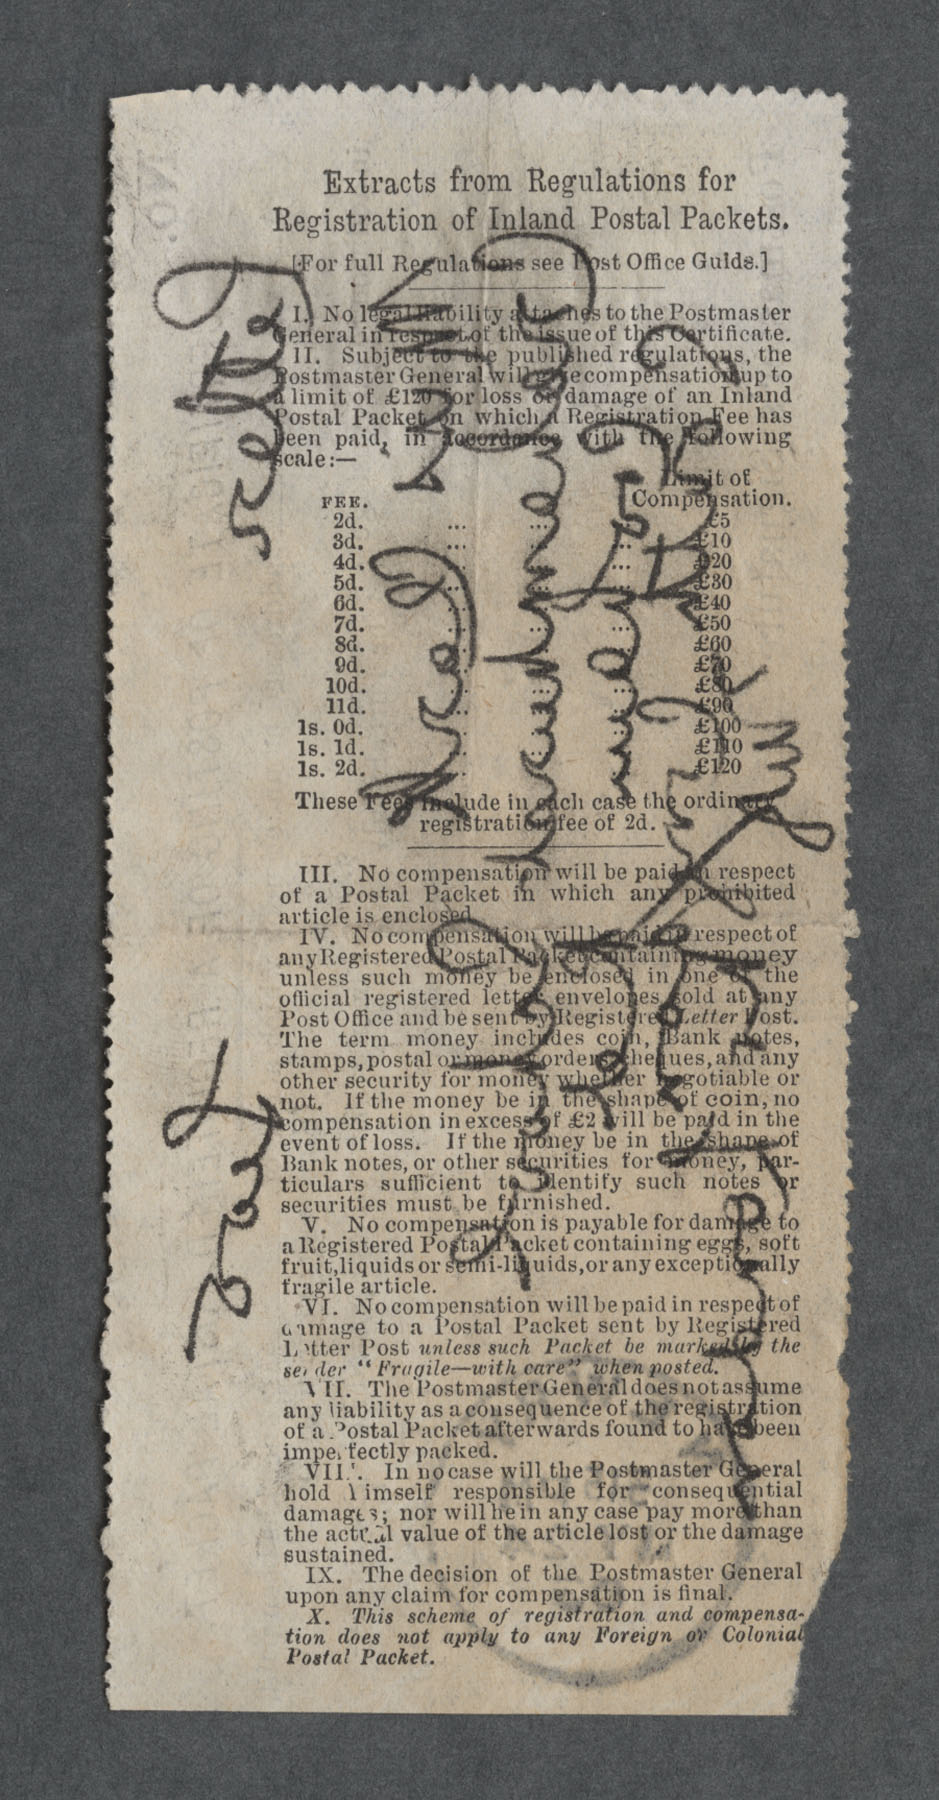 Extracts from Regulations for
Registration of Inland Postal Packets.
[For full Regulations see Post Office Guide.]
I. No legal liability attaches to the Postmaster
General in respect of the issue of this Certificate.
II. Subject to the published regulations, the
Postmaster General will give compensation up to
a limit of £120 for loss or damage of an Inland
Postal Packet on which a Registration Fee has
been paid, in accordance with the following
scale:—
FEE. Limit of Compensation.
2d. ... ... ... £5
3d. ... ... ... £10
4d. ... ... ... £20
5d. ... ... ... £30
6d. ... ... ... £40
7d. ... ... ... £50
8d. ... ... ... £60
9d. ... ... ... £70
10d. ... ... ... £80
11d. ... ... ... £90
1s. 0d. ... ... ... £100
1s. 1d. ... ... ... £110
1s. 2d. ... ... ... £120
These Fees include in each case the ordinary
registration fee of 2d.
III. No compensation will be paid in respect
of a Postal Packet in which any prohibited
article is enclosed.
IV. No compensation will be paid in respect of
any Registered Postal Packet containing money
unless such money be enclosed in one of the
official registered letter envelopes sold at any
Post Office and be sent by Registered Letter Post.
The term money includes coin, Bank notes,
stamps, postal or money orders, cheques, and any
other security for money whether negotiable or
not. If the money be in the shape of coin, no
compensation in excess of £2 will be paid in the
event of loss. If the money be in the shape of
Bank notes, or other securities for money, par-
ticulars sufficient to identify such notes or
securities must be furnished.
V. No compensation is payable for damage to
a Registered Postal Packet containing eggs, soft
fruit, liquids or semi-liquids, or any exceptionally
fragile article.
VI. No compensation will be paid in respect of
damage to a Postal Packet sent by Registered
Letter Post unless such Packet be marked by the
sender "Fragile—with care" when posted.
VII. The Postmaster General does not assume
any liability as a consequence of the registration
of a Postal Packet afterwards found to have been
imperfectly packed.
VIII. In no case will the Postmaster General
hold himself responsible for consequential
damages; nor will he in any case pay more than
the actual value of the article lost or the damage
sustained.
IX. The decision of the Postmaster General
upon any claim for compensation is final.
X. This scheme of registration and compensa-
tion does not apply to any Foreign or Colonial
Postal Packet.